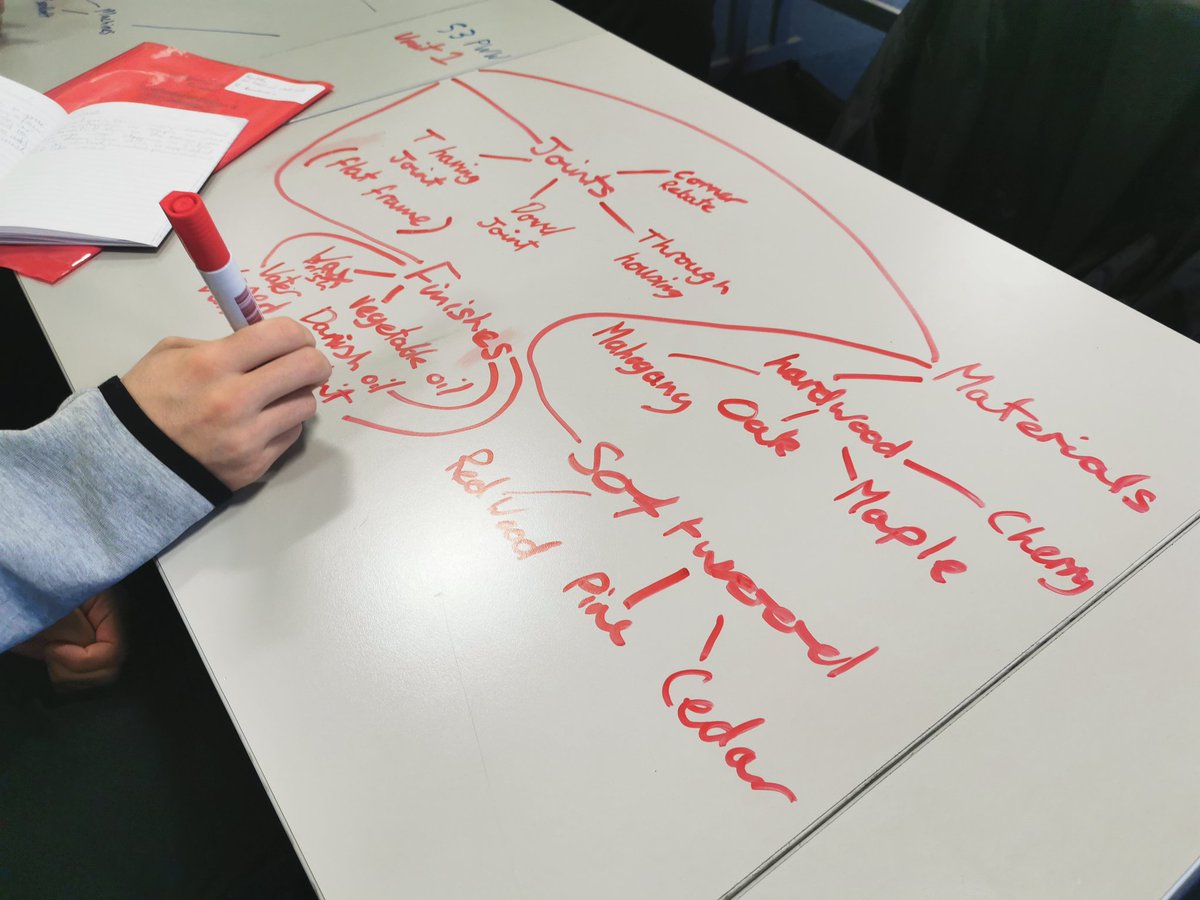 S3 PWW
Unit 1
Joints
T halving
Joint
(flat frame)
Dowl
Joint
Corner
Rebate
Through
housing
Finishes
Wax
Vegetable oil
Danish oil
Water
Materials
hardwood
Mahogany
Oak
Maple
Cherry
Softwood
Red Wood
Pine
Cedar